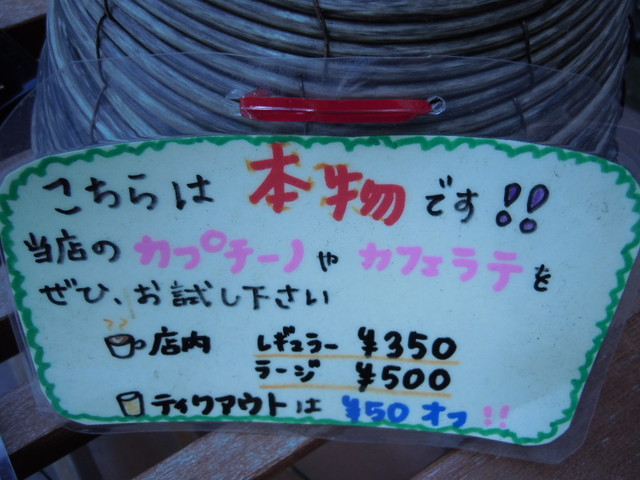 こちらは 本物 です!!
当店の カプチーノ や カフェラテ を
ぜひ、お試し下さい
店内 レギュラー ¥350
ラージ ¥500
ティクアウトは ¥50 オフ !!